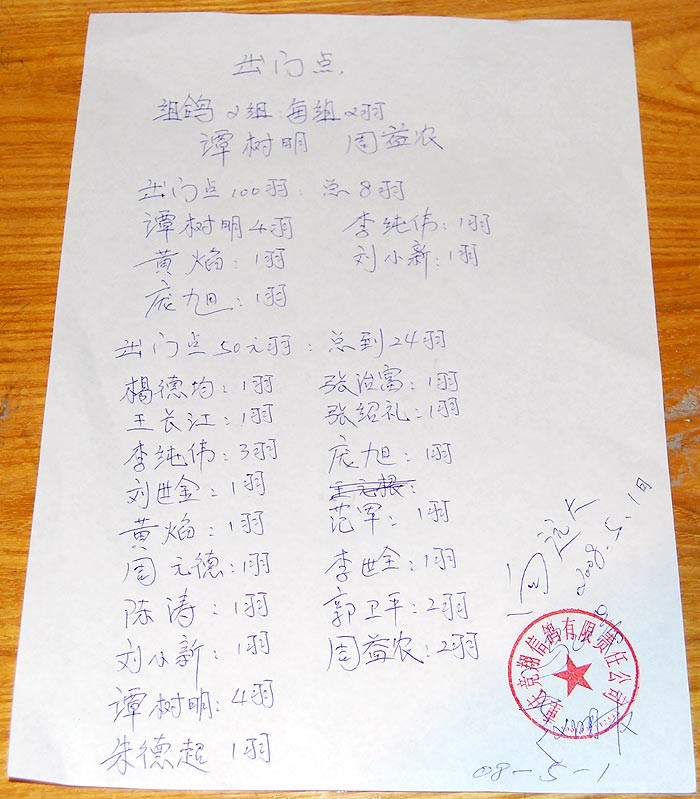 出门点.
组鸽2组:每组2羽
谭树明 周益农
出门点100羽: 总8羽
谭树明4羽 李纯伟:1羽
黄焰:1羽 刘小新:1羽
庞旭:1羽
出门点50元羽:总到24羽
楊德均:1羽 张治富:1羽
王长江:1羽 张绍礼:1羽
李纯伟:3羽 庞旭:1羽
刘世金:1羽
黄焰:1羽 范军:1羽
周元德:1羽 李世全:1羽
陈涛:1羽 郭卫平:2羽
刘小新:1羽 周益农:2羽
谭树明:4羽
朱德超 1羽
2008.5.1日
竞翔信鸽有限责任公司
08-5-1